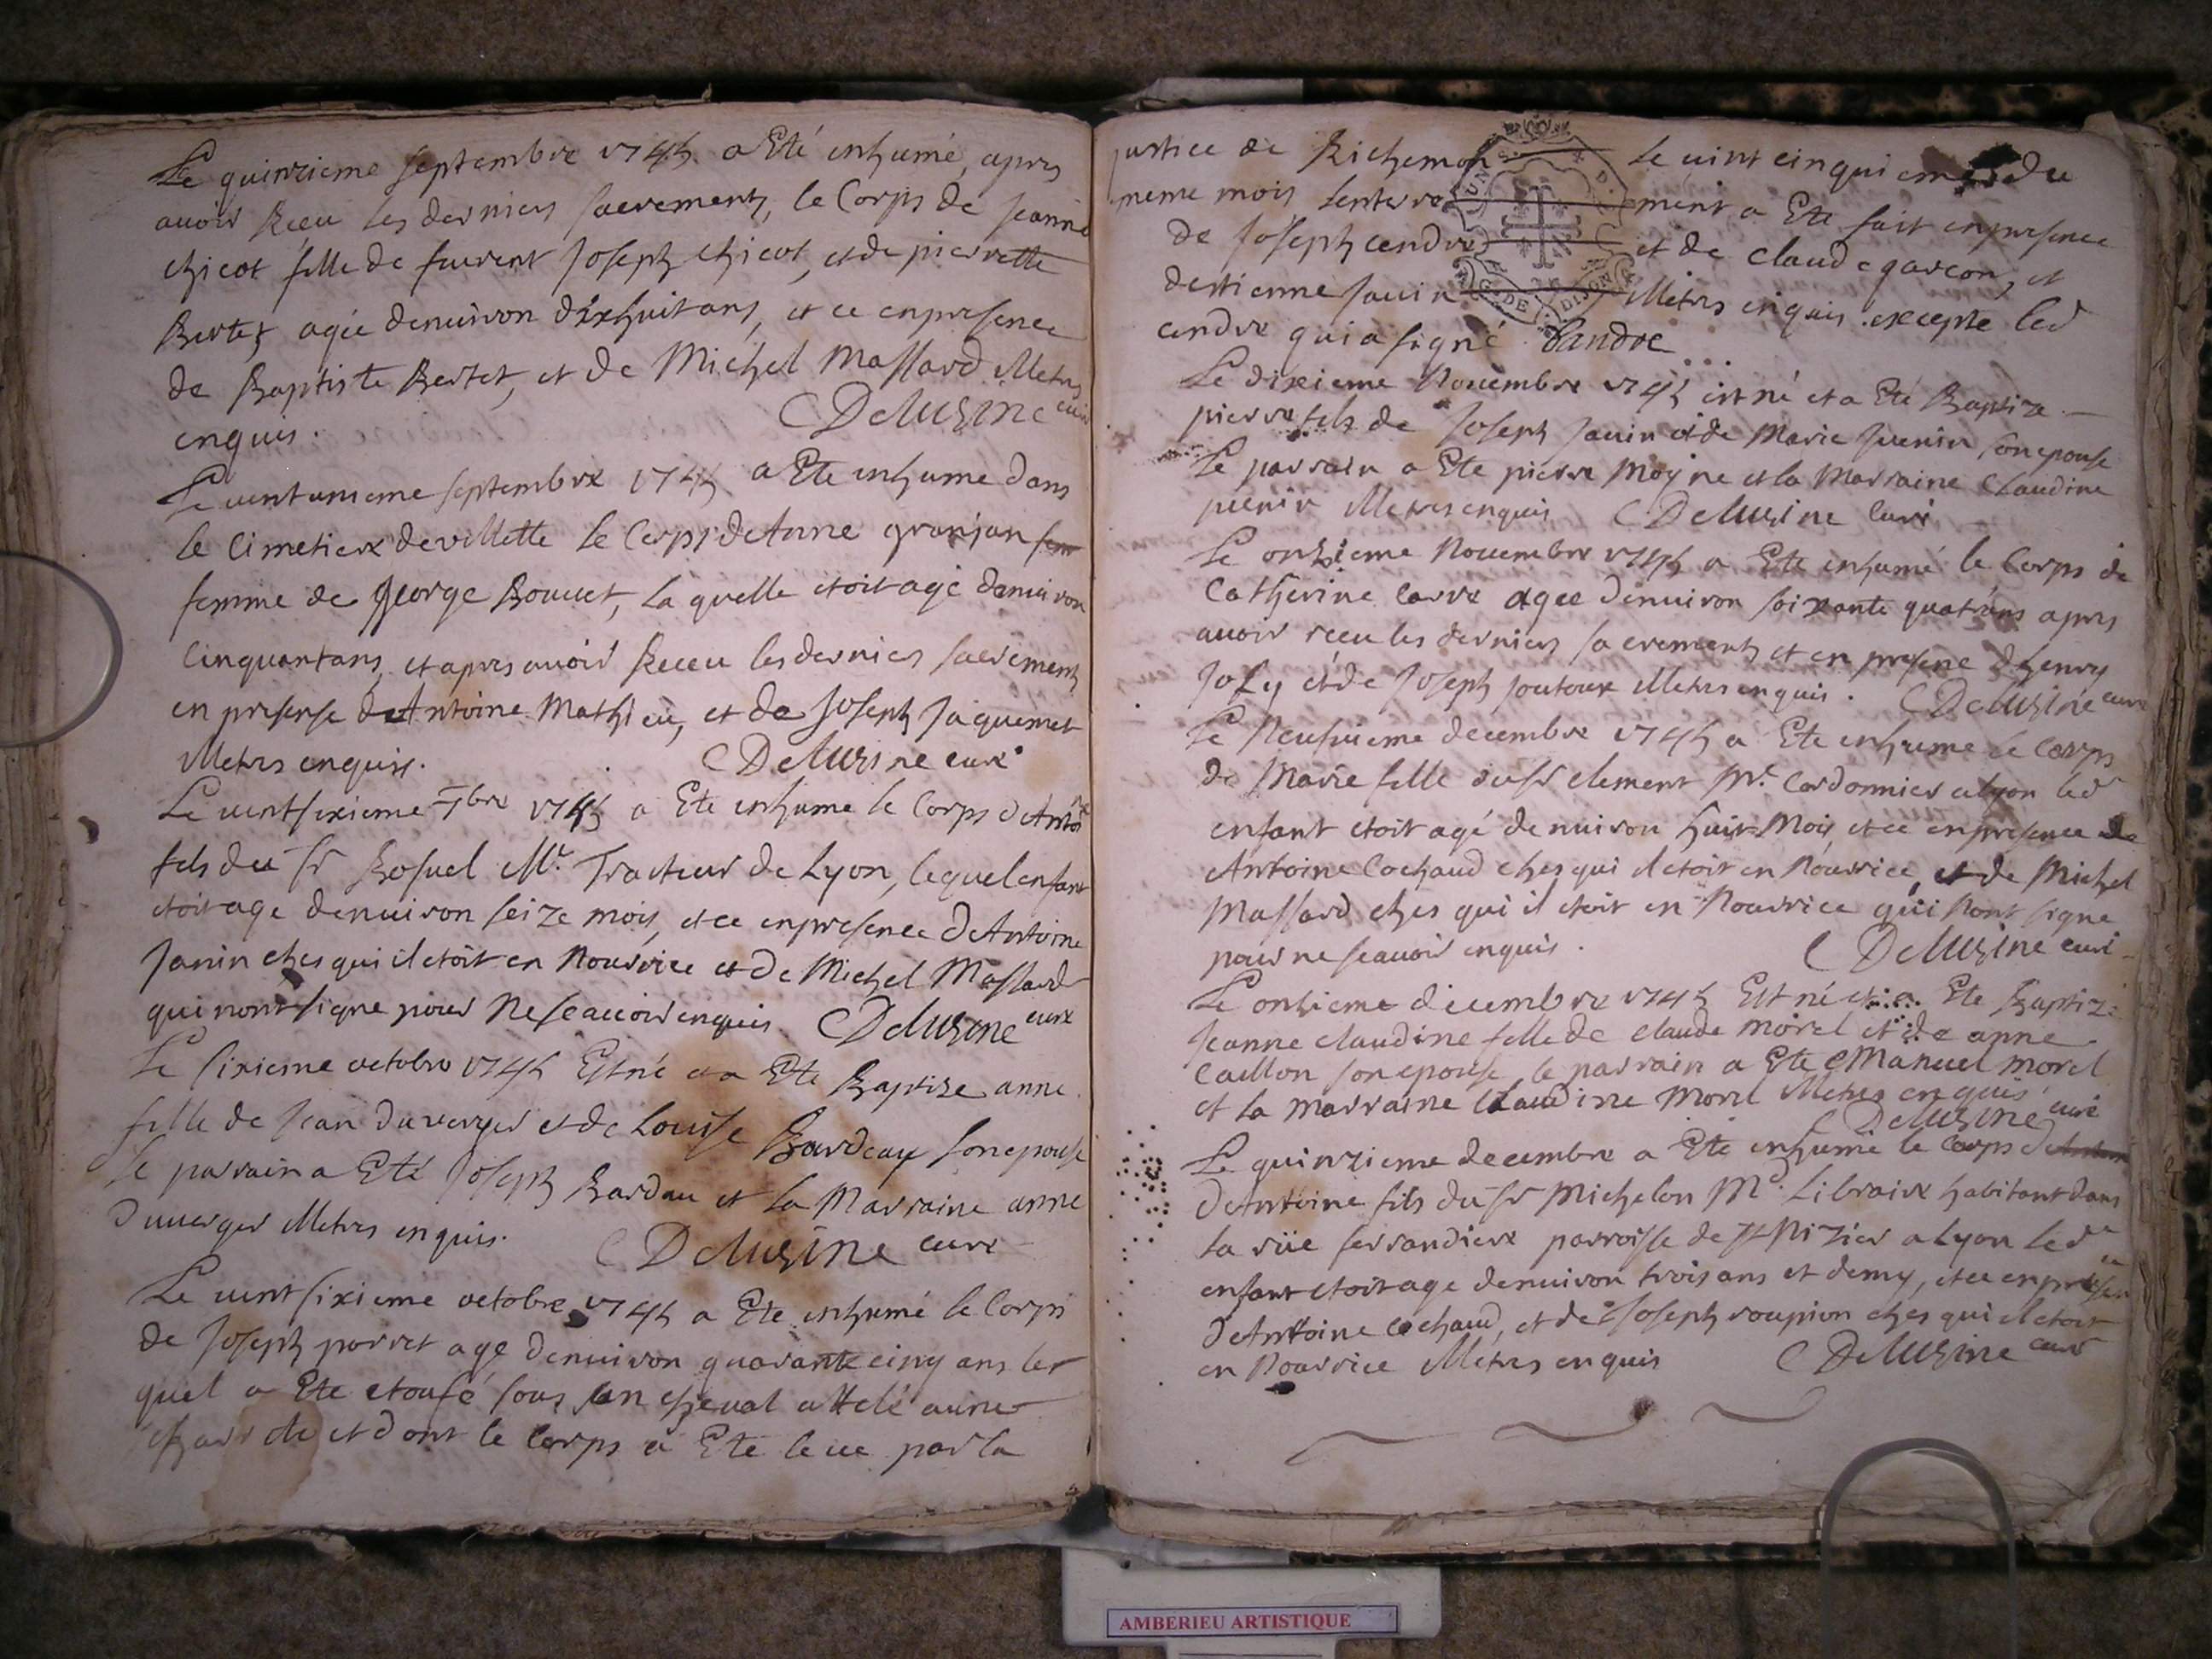 Le quinzieme septembre 1745 a Eté inhumé, apres
avoir Receu les derniers sacrements, le Corps de jeanne
chicot fille de Joseph chicot, et de pierrette
Bertet agée denuiron dixhuit ans, et ce enpresence
de Baptiste Bertet, et de Michel Massard
enquis. Deluzine curé
Le uint unieme septembre 1745 a Ete inhume dans
le Cimetiere de villette le Corps d'Anne granjan
femme de George Bouuet, la quelle etoit agé denuiron
Cinquantans, et apres auoir Receu les derniers sacrements
en presense d'Antoine Mathieu, et de Joseph jaquemet
enquis. Deluzine curé
Le uint sixieme 7bre 1745 a Ete inhume le Corps d'Antoine
fils du sr Bosuel Mr Tracteur de Lyon, lequel enfant
etoit age denuiron seize mois, et ce enpresence d'Antoine
Janin ches qui il etoit en Nourrice et de Michel Massard
qui nont signe pour Ne sçauoir enquis Deluzine curé
Le sixieme octobre 1745 Est né et a Ete Baptize anne
fille de jean duverger et de Louise Bardeau son epouse
le parrain a Eté Joseph Bardau et la Marraine anne
duuerger enquis. Deluzine curé
Le uint sixieme octobre 1745 a Ete inhumé le Corps
de Joseph porret agé denuiron quarante cinq ans le
quel a Ete etoufé sous son cheval attelé aune
et dont le Corps a Ete leue par la
justice de Richemon le uint cinquieme du
meme mois lenterrement a Ete fait enpresence
de Joseph cendre et de claude garcon, et
destienne janin enquis excepte led
cendre qui a signé Candre
Le dixieme Nouembre 1745 est né et a Eté Baptize
pierre fils de Joseph janin et de Marie juenin son epouse
Le parrain a Ete pierre Moyne et la Marraine Claudine
juenin enquis Deluzine Curé
Le onzieme Nouembre 1745 a Ete inhumé le Corps de
Catherine Carre agee denuiron soixante quatrans apres
auoir receu les derniers sacrements et en presene dhenry
joly et de Joseph enquis. Deluzine curé
Le Neufuieme decembre 1745 a Ete inhume le Corps
de Marie fille du sr clement Mr Cordonnier a lyon led
enfant etoit agé denuiron huit Mois et ce enpresence de
Antoine Cochaud ches qui il etoit en Nourrice et de Michel
Massard ches qui il etoit en Nourrice qui Nont signe
pour ne sçauoir enquis. Deluzine curé
Le onzieme decembre 1745 Est né et a Ete Baptizé
jeanne claudine fille de claude morel et de anne
Caillon son epouse, le parrain a Ete Emanuel morel
et la marraine Claudine Morel enquis
Deluzine curé
Le quinzieme decembre a Ete inhumé le Corps
d'Antoine fils du sr Michelon Md Libraire habitant dans
la rüe ferrandiere parroisse de st Nizier a Lyon led
enfant etoit age denuiron trois ans et demy, et ce enpresence
d'Antoine cochaud, et de Joseph roupion ches qui il etoit
en Nourrice enquis Deluzine curé
AMBERIEU ARTISTIQUE